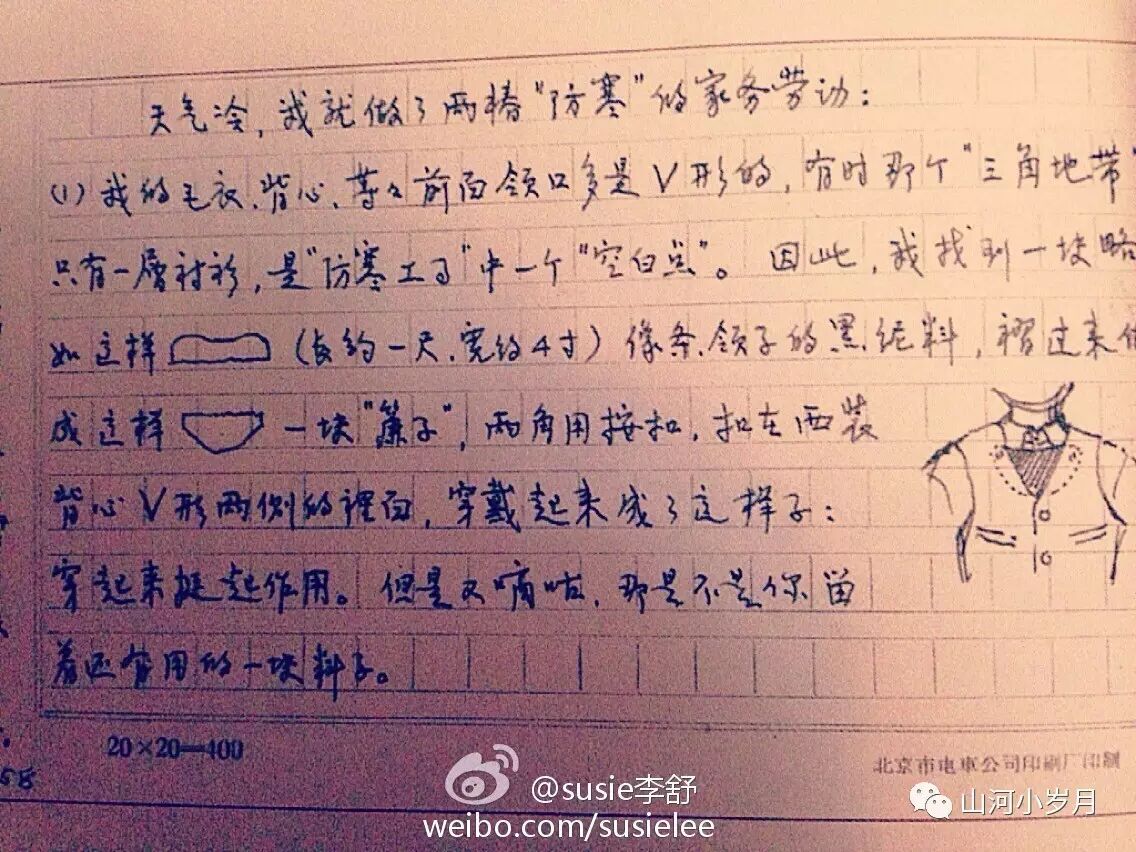 天气冷，我就做了两椿“防寒”的家务劳动：
(1) 我的毛衣、背心、等々前面领口多是V形的，有时那个“三角地带”
只有一层衬衫，是“防寒工事”中一个“空白点”。因此，我找到一块略
如这样 (长约一尺、宽约4寸) 像条领子的黑绒料，褶过来
成这样 一块“簾子”，两角用按扣，扣在西装
背心V形两侧的裡面，穿戴起来成了这样子：
穿起来挺起作用。但是又嘀咕，那是不是你留
着还有用的一块料子。
20×20=400
北京市电車公司印刷厂印制
58
@susie李舒
weibo.com/susielee
山河小岁月